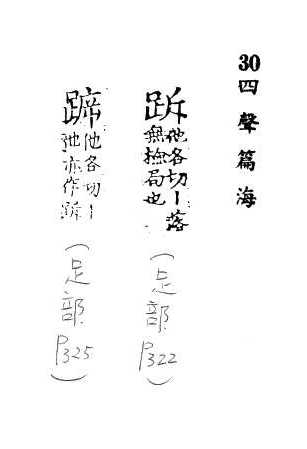 30四聲篇海
跅他各切丨落
無撿局也
(足部
P322)
蹠他各切丨
弛亦作跅
(足部
P325)